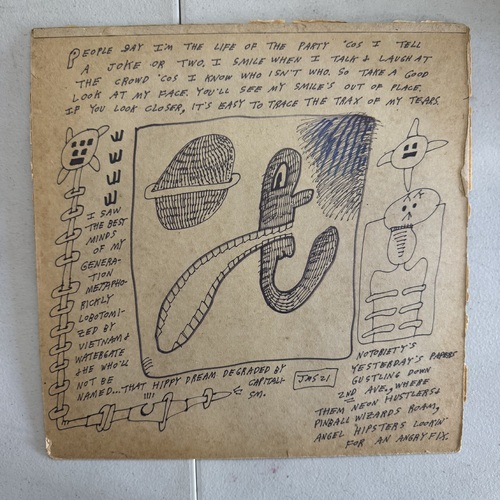 PEOPLE SAY I'M THE LIFE OF THE PARTY 'COS I TELL
A JOKE OR TWO. I SMILE WHEN I TALK & LAUGH AT
THE CROWD 'COS I KNOW WHO ISN'T WHO. SO TAKE A GOOD
LOOK AT MY FACE. YOU'LL SEE MY SMILE'S OUT OF PLACE.
IF YOU LOOK CLOSER, IT'S EASY TO TRACE THE TRAX OF MY TEARS.
I SAW
THE BEST
MINDS
OF MY
GENERA-
TION
METAPHO-
RICKLY
LOBOTOMI-
ZED BY
VIETNAM &
WATERGATE
& HE WHO'LL
NOT BE
NAMED...THAT HIPPY DREAM DEGRADED BY
CAPITALI-
SM.
JMS21
NOTORIETY'S
YESTERDAY'S PAPERS
GUSTLING DOWN
2ND AVE, WHERE
THEM NEON HUSTLERS &
PINBALL WIZARDS ROAM,
ANGEL HIPSTERS LOOKIN'
FOR AN ANGRY FIX.